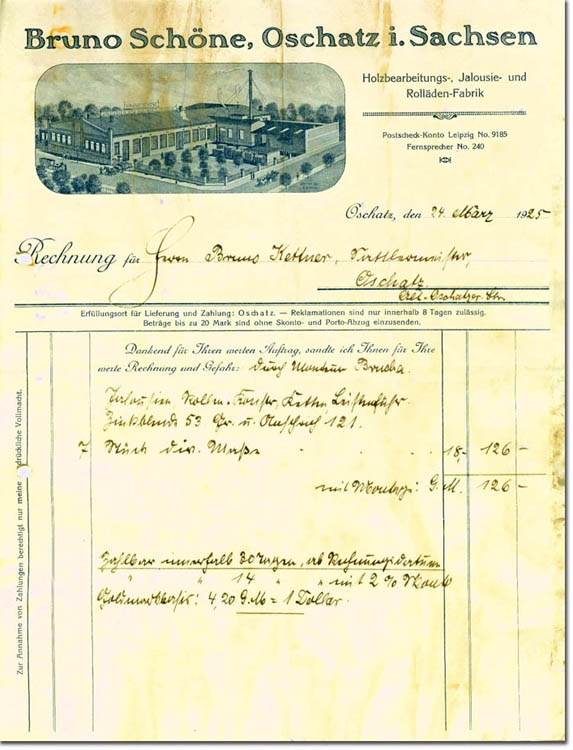 Bruno Schöne, Oschatz i. Sachsen
Holzbearbeitungs-, Jalousie- und
Rolläden-Fabrik
Postscheck-Konto Leipzig No. 9185
Fernsprecher No. 240
Oschatz, den 24. März 1925
Rechnung für Herrn Bruno Kettner, Sattlermeister,
Oschatz
Erfüllungsort für Lieferung und Zahlung: Oschatz. — Reklamationen sind nur innerhalb 8 Tagen zulässig.
Beträge bis zu 20 Mark sind ohne Skonto- und Porto-Abzug einzusenden.
Dankend für Ihren werten Auftrag, sandte ich Ihnen für Ihre
werte Rechnung und Gefahr: durch Monteur
Jalousien
53 u. 121.
7 Stück div. Maße 18,- 126 -
mit Montage: G.M. 126 -
Zahlbar innerhalb 30 Tagen, ab Rechnungsdatum
" " 14 " " mit 2 %
4,20 G.M. = 1 Dollar.
Zur Annahme von Zahlungen berechtigt nur meine drückliche Vollmacht.